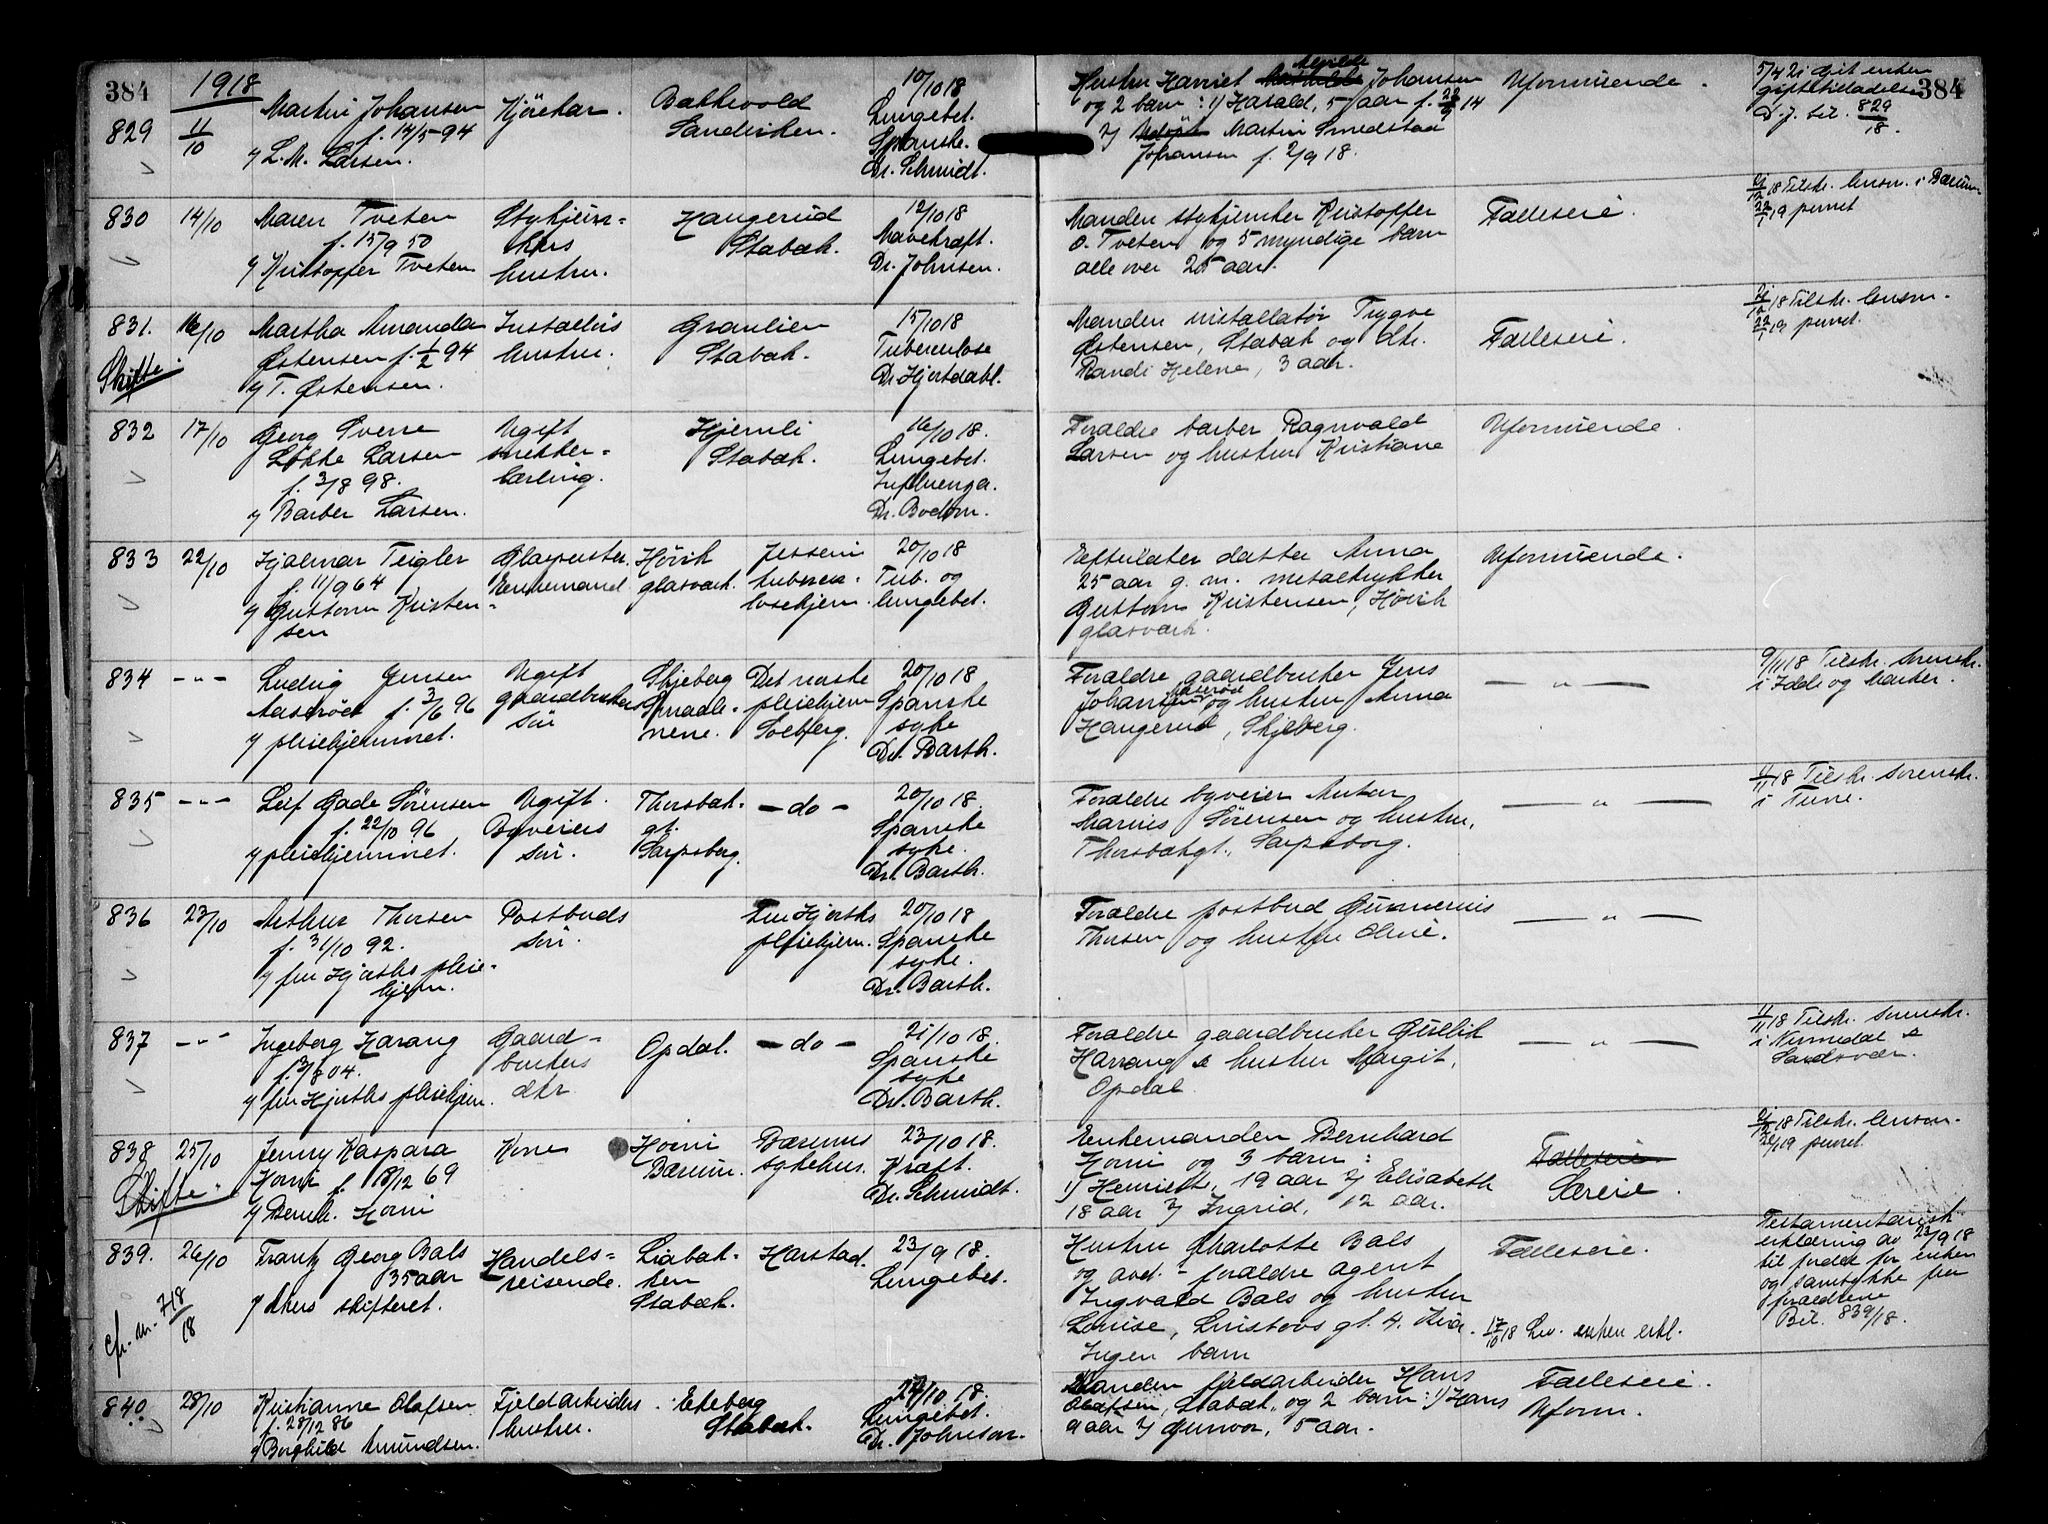 384
1918
829
11/10
Martin Johansen
f. 14/5-94
v/ L. M. Larsen.
Kjörekar.
Bakkevold
Sandviken.
10/10 18
Lungebet.
Spanske.
Dr. Schmidt.
Hustru Harriet Johansen
og 2 barn: 1) Harald, 5 aar f. 22/9 14
2/ Udöpt Martin Smedstad
Johansen f. 2/9 18.
Uformuende.
5/4 21 Git enken
giftetilladelse
D. j. bil. 829/18.
384
830
14/10
Maren Tveten
f. 15/9 50
v/ Kristoffer Tveten
Stykjunkers
hustru.
Haugerud
Stabæk.
12/10 18
Mavekræft.
Dr. Johnsen.
Manden stykjunker Kristoffer
O. Tveten og 5 myndige barn
alle over 25 aar.
Fælleseie.
2/12 18 Tilskr. lensm. i Bærum
22/1 19 purret
831.
Skifte
16/10
Martha Amanda
Östensen f. 1/2 94
v/ T. Östensen.
Installörs
hustru.
Granlien
Stabæk.
15/10 18
Tuberculose
Dr. Hjortdahl.
Manden installatör Trygve
Östensen, Stabæk og dtr.
Randi Helene, 3 aar.
Fælleseie.
2/12 18 Tilskr. lensm.
22/1 19 purret.
832
17/10
Georg Sverre
Løkke Larsen
f. 3/8 98.
v/ Barber Larsen.
Ugift
snekker-
lærling.
Hjemli
Stabæk.
16/10 18.
Lungebet.
Influenza.
Dr. Bodom.
Forældre barber Ragnvald
Larsen og hustru Kristiane
Uformuende.
833
22/10
Hjalmar Teigler
f. 11/9 64
v/ Guttorm Kristen-
sen
Glaspuster.
Enkemand.
Hövik
glasværk.
Jessenii
tubercu-
losehjem.
20/10 18
Tub. og
lungebet.
Efterlater datter Anna
25 aar g. m. metaltrykker
Guttorm Kristensen, Hövik
glasværk.
Uformuende.
834
- " -
Ludvig Jensen
Aaseröd f. 3/6 96
v/ pleiehjemmet.
Ugift
gaardbruker
sön
Skjeberg
Smaale-
nene.
Det norske
pleiehjem
Solberg.
20/10 18
Spanske
syke
Dr. Barth.
Forældre gaardbruker Jens
Johansen Aaseröd og hustru Anna
Haugerud, Skjeberg.
- " -
9/11 18 Tilskr. sorenskr.
i Idde og Marker.
835
- " -
Leif Gade Sörensen
f. 22/10 96
v/ pleiehjemmet.
Ugift.
Byveiers
sön.
Thorsbæk-
gt.
Sarpsborg.
- do -
20/10 18.
Spanske
syke.
Dr. Barth.
Forældre byveier Anton
Marius Sörensen og hustru,
Thorsbækgt., Sarpsborg.
- " -
11/11 18 Tilskr. sorenskr.
i Tune.
836
23/10
Arthur Thorsen
f. 31/10 92.
v/ fru Hjorths pleie-
hjem.
Postbuds
sön.
Fru Hjorths
pleiehjem.
20/10 18
Spanske
syke.
Dr. Barth.
Forældre postbud Gunnerius
Thorsen og hustru Oline.
- " -
837
- " -
Ingeborg Harang
f. 3/8 04.
v/ fru Hjorths pleiehjem.
Gaard-
brukers
dtr
Opdal.
- do -
21/10 18.
Spanske
syke
Dr. Barth.
Forældre gaardbruker Gullik
Harrang & hustru Margit,
Opdal.
- " -
11/11 18 Tilskr. sorenskr.
i Numedal &
Sandsvær.
838
Skifte.
25/10
Jenny Kaspara
Horni f. 18/12 69
v/ Bernh. Horni
Kone
Horni
Bærum.
Bærums
sykehus.
23/10 18.
Kræft.
Dr. Schmidt.
Enkemanden Bernhard
Horni og 3 barn:
1) Henriette, 19 aar 2/ Elisabeth
18 aar 3/ Ingrid, 12 aar.
Fælleseie
Særeie.
2/12 18 Tilskr. lensm.
22/1 19 purret
839.
cfr. nr. 718/18
26/10
Frantz Georg Bals
35 aar
v/ Akers skifteret.
Handels-
reisende.
Liabak-
ken
Stabæk.
Harstad.
23/9 18.
Lungebet.
Hustru Charlotte Bals
og avd. - forældre agent
Ingvald Bals og hustru
Louise, gt. 4. Kr.a.
Ingen barn
Fælleseie.
17/10 18 Lev. enken erkl.
Testamentarisk
erklæring av 23/9 18
til fordel for enken
og samtykke fra
forældrene
Bil. 839/18.
840
28/10
Kristianne Olafsen
f. 28/12 86
v/ Borghild Amundsen.
Fjeldarbeiders
hustru.
Ekeberg
Stabæk.
27/10 18.
Lungebet.
Dr. Johnson.
Manden fjeldarbeider Hans
Olafsen, Stabæk, og 2 barn: 1) Hans
9 aar 2/ Gunvor, 5 aar.
Fælleseie.
Uform.